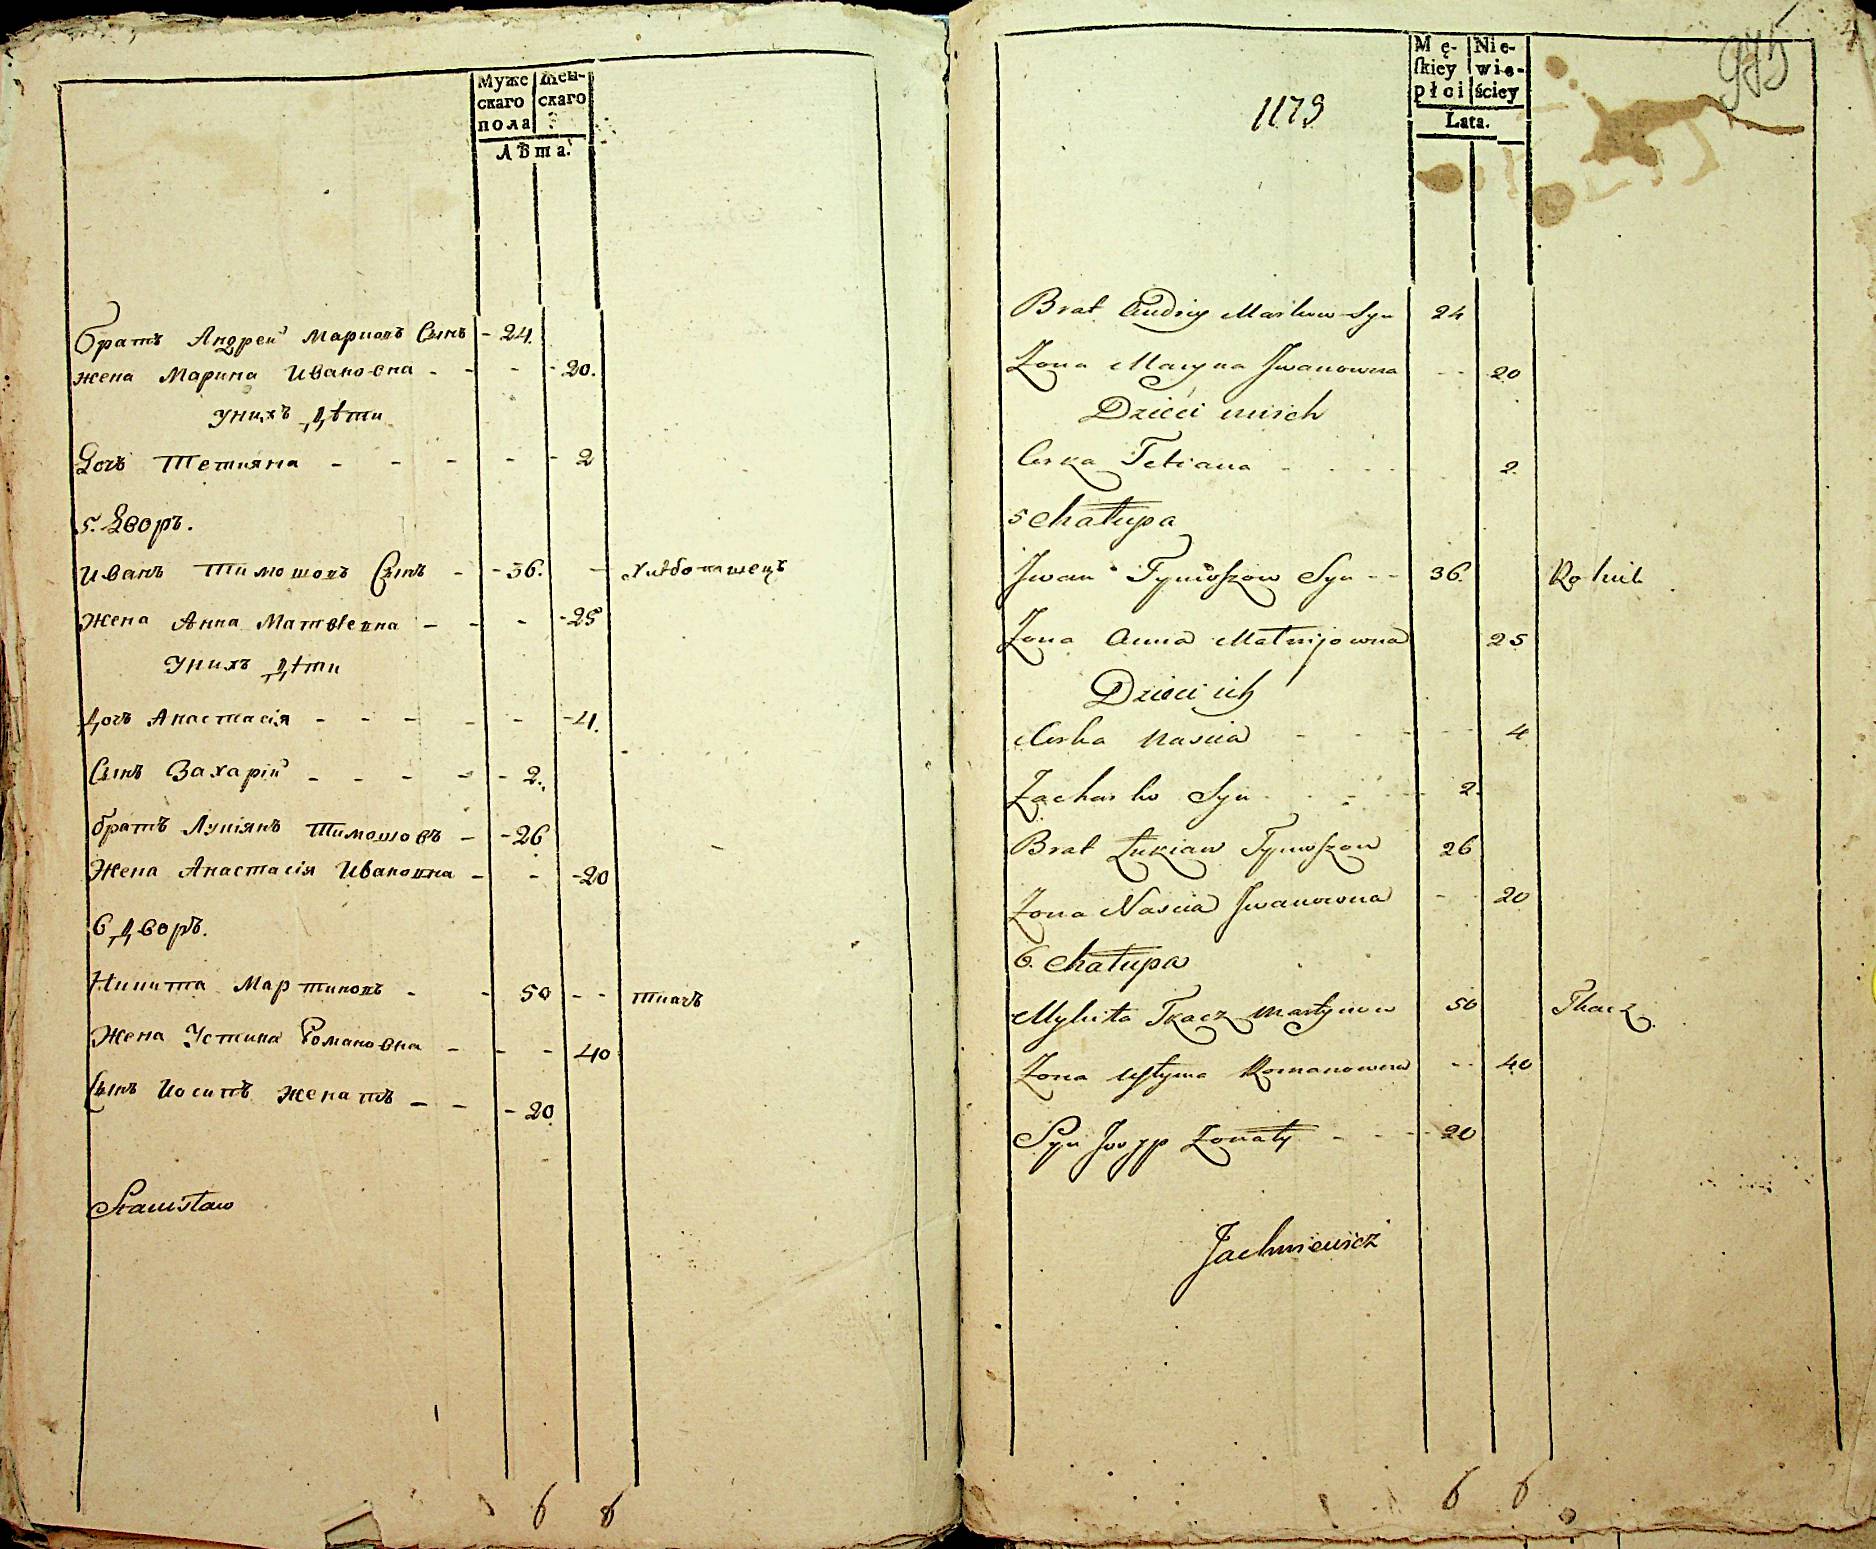 Муже
скаго
пола
Жен-
скаго
?
Лѣта.
братъ Андрей Марковъ Сынъ - 24.
жена Марина Ивановна - - - - 20.
унихъ дѣти
Дочь Тетияна - - - - - 2
5. Дворъ.
Иванъ Тимошовъ Сынъ - - 36. - Хлѣбопашецъ
Жена Анна Матвѣевна - - - - 25
Унихъ дѣти
Дочь Анастасія - - - - - - 4.
Сынъ Захарій - - - - - 2.
братъ Лукіянъ Тимошовъ - - 26
Жена Анастасія Ивановна - - - 20
6 Дворъ.
Никита Мартиновъ - - 50 - - ткачъ
Жена Устина Романовна - - - 40
Сынъ Иосипъ женатъ - - - 20
Stanisław
6 6
975
1173
Mę-
skiey
płci
Nie-
wie-
ściey
Lata.
Brat Andriy Markow Syn 24
Zona Maryna Jwanowna - - 20
Dzieci unich
Corka Tetiana - - - - 2.
5 Chałupa
Jwan Tymoszow Syn - - 36. Rolnik
Zona Anna Matwijowna 25
Dzieci ich
Corka Nascia - - - - - 4
Zacharko Syn - - - - 2.
Brat Łukian Tymoszow 26
Zona Nascia Jwanowna - - 20
6. Chałupa
Mykita Tkacz Martynow 50 Tkacz.
Zona Ustyma Romanowna - - 40
Syn Josyp Zonaty - - - 20
Jachniewicz
6 6